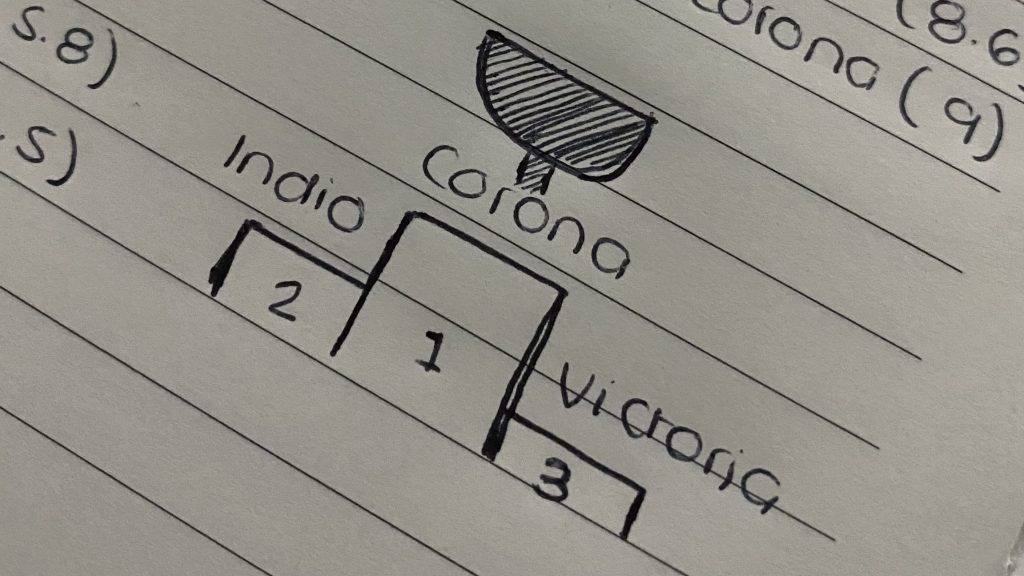 5.8)
.5)
(8.6
orona (9)
Indio
Corona
2
1
Victoria
3